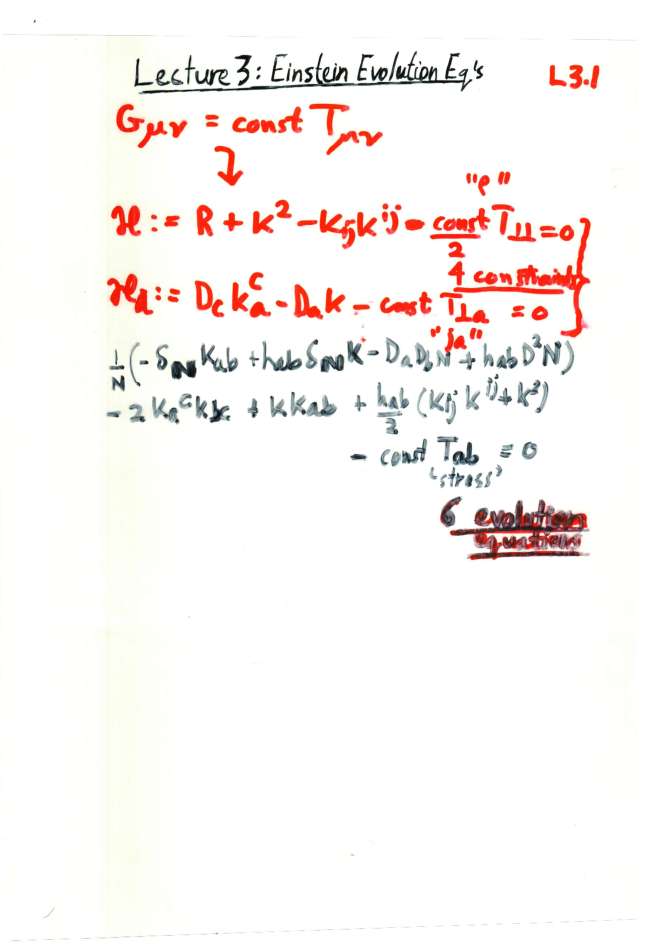 Lecture 3: Einstein Evolution Eq's L3.1
Gμν = const Tμν
↓
"ρ"
ℋ := R + K² - KijK^ij - const/2 T⊥⊥ = 0
4 constraints
ℋa := Dc Ka^c - Da K - const T⊥a = 0
"ja"
1/N (-δN Kab + hab δN K - DaDbN + hab D²N)
- 2 Ka^c Kbc + K Kab + hab/2 (Kij K^ij + K²)
- const Tab = 0
'stress'
6 evolution
equations